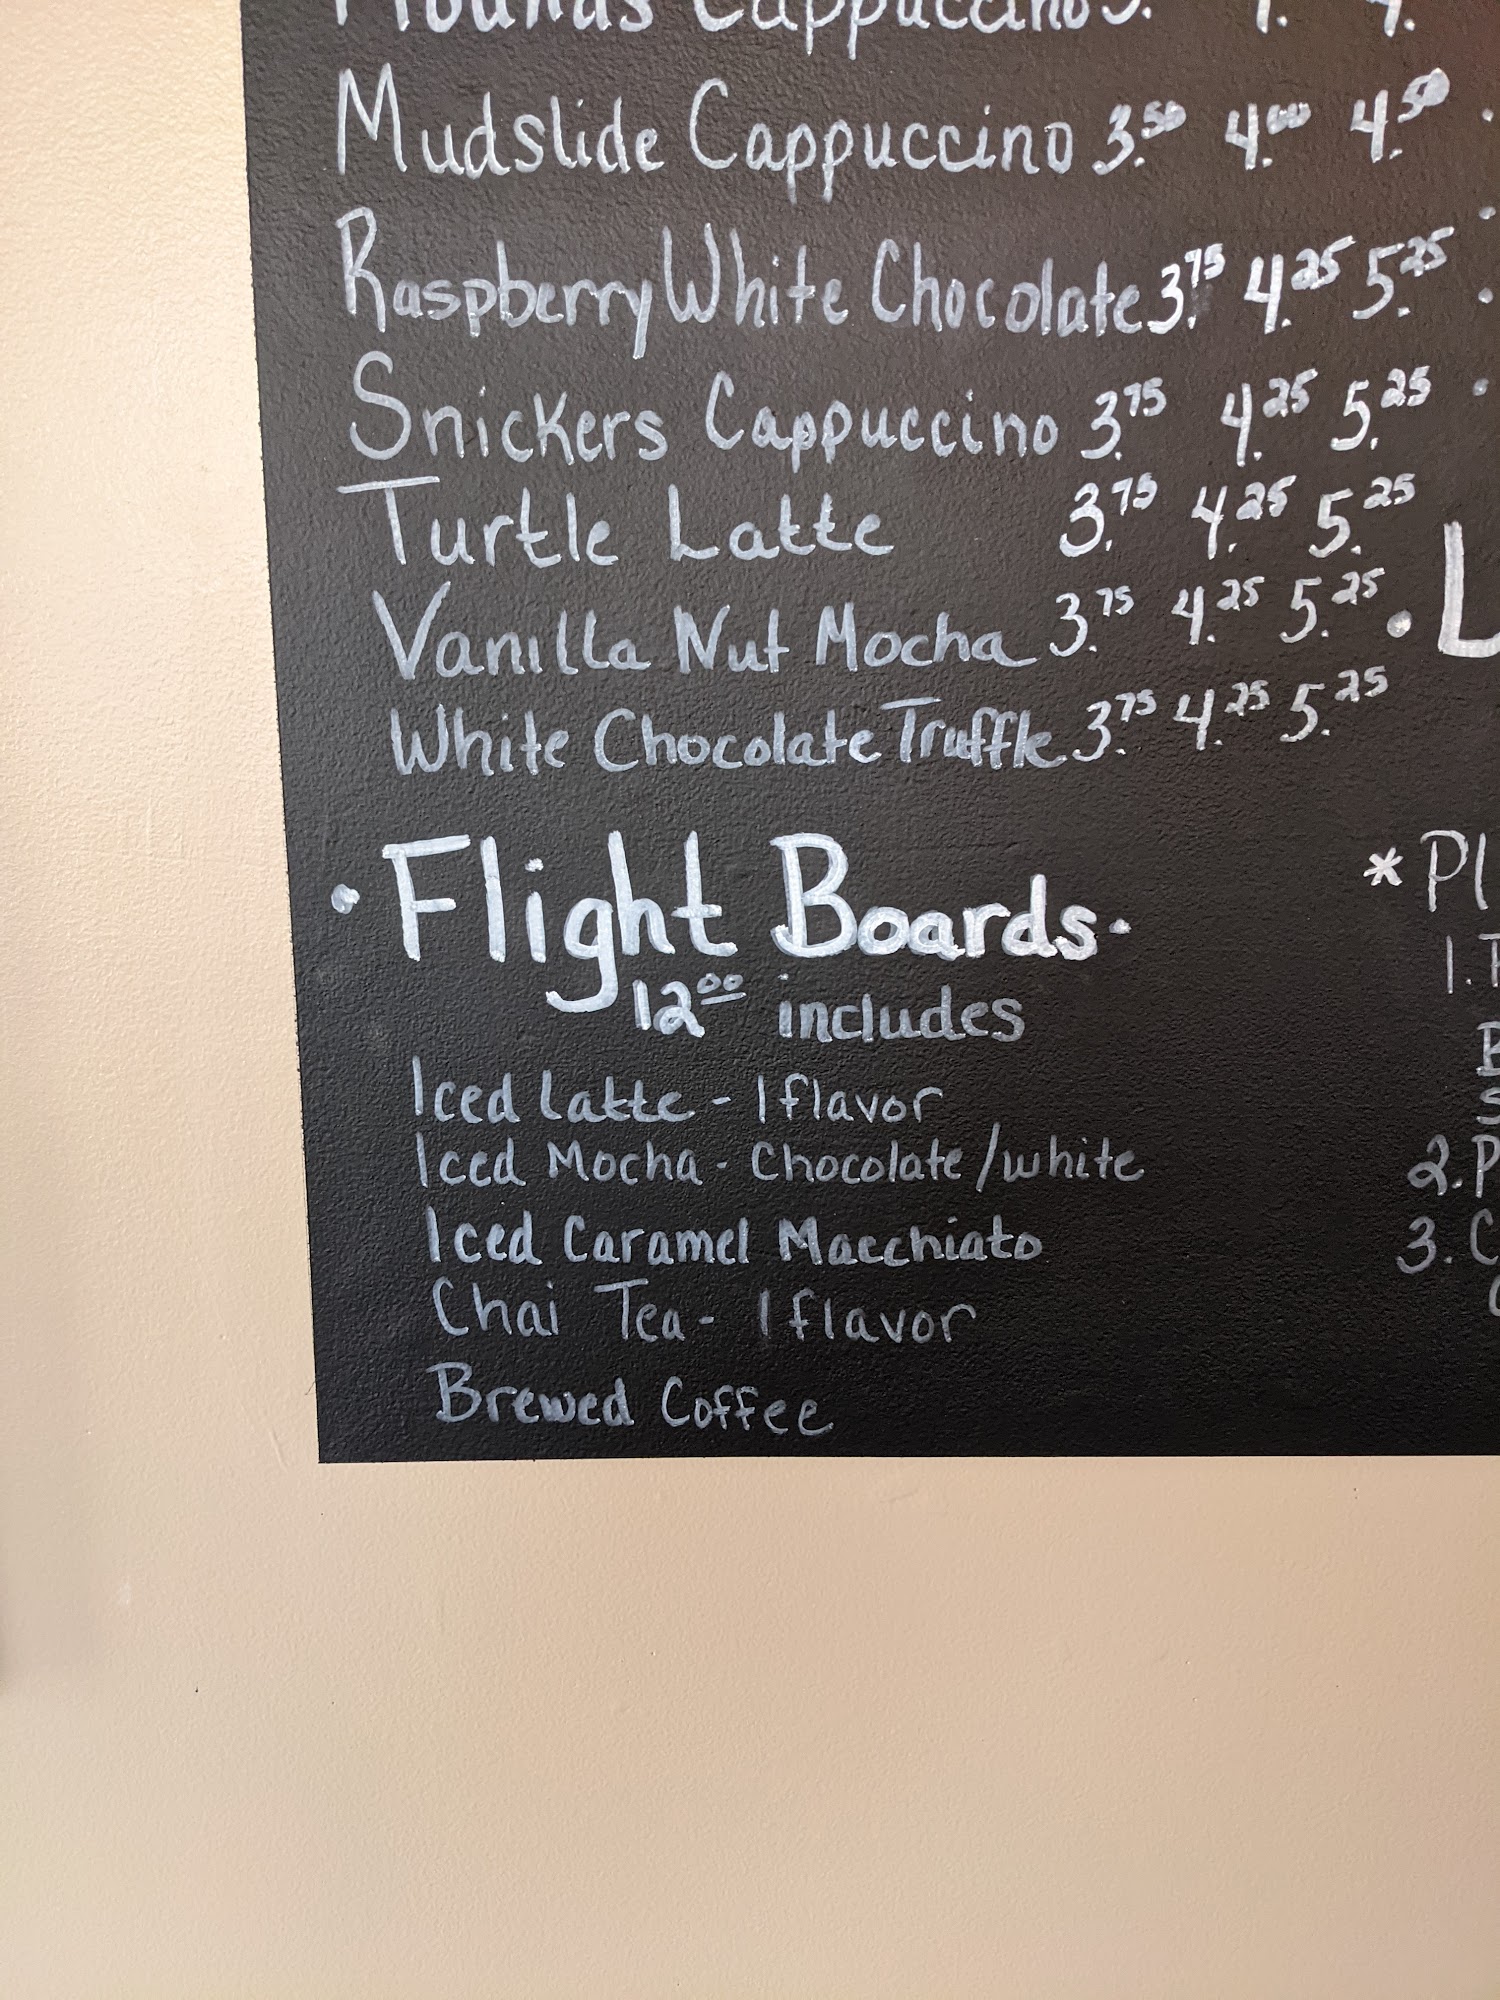 Mounds Cappuccino 3. 4. 4.
Mudslide Cappuccino 3.50 4.00 4.50
Raspberry White Chocolate 3.75 4.25 5.25
Snickers Cappuccino 3.75 4.25 5.25
Turtle Latte 3.75 4.25 5.25
Vanilla Nut Mocha 3.75 4.25 5.25
White Chocolate Truffle 3.75 4.25 5.25
• Flight Boards •
12.00 includes
Iced Latte - 1 flavor
Iced Mocha - Chocolate/white
Iced Caramel Macchiato
Chai Tea - 1 flavor
Brewed Coffee
• L
* Pl
1.
2. P
3. C